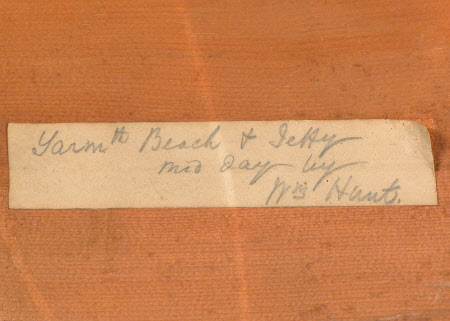 Yarmth Beach & Jetty
mid day by
Wm Hunt.